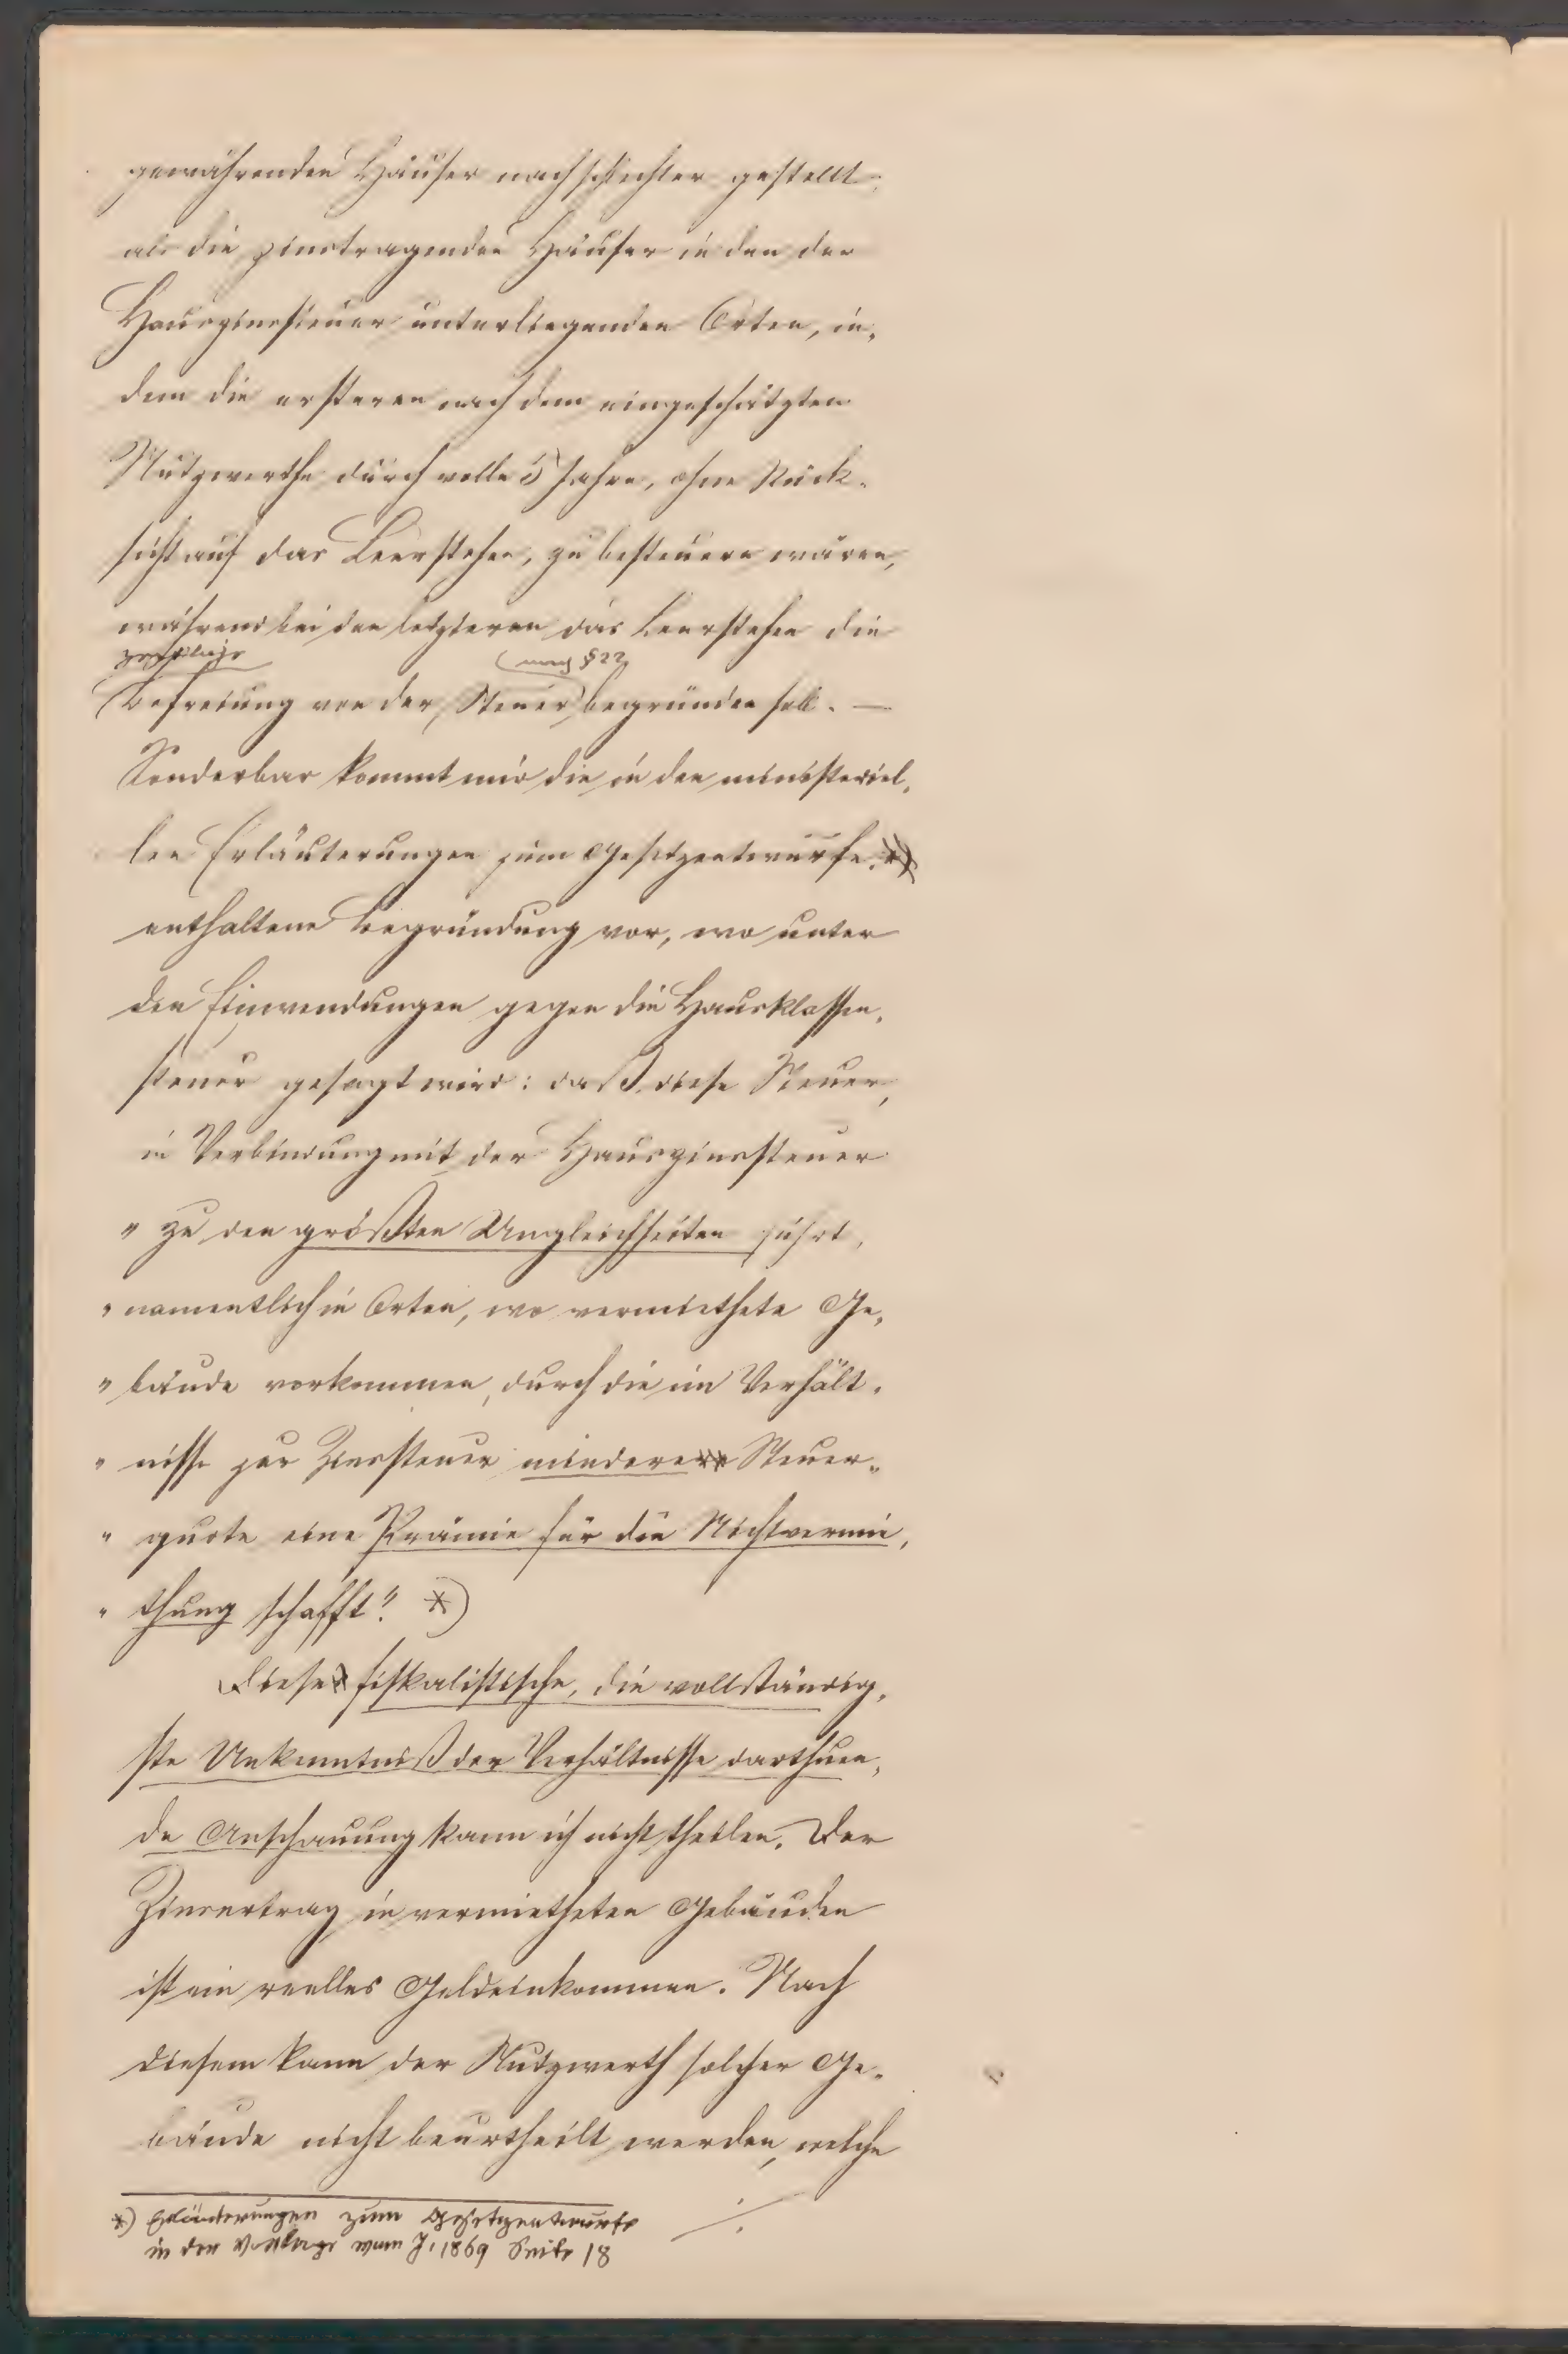 gewährenden Häuser noch schlechter gestellt,
als die zinstragenden Häuser in den der
Hauszinssteuer unterliegenden Orten, in-
dem die ersteren nach dem eingeschätzten
Nutzwerthe durch volle 5 Jahre, ohne Rück-
sicht auf das Leerstehen, zu besteuern wären,
während bei den letzteren das Leerstehen die
zeitliche (nach §22)
Befreiung von der Steuer begründen soll. —
Sonderbar kommt mir die in den ministeriel-
len Erläuterungen zum Gesetzentwurfe
enthaltene Begründung vor, wo unter
den Einwendungen gegen die Hausklassen-
steuer gesagt wird: daß diese Steuer,
in Verbindung mit der Hauszinssteuer
" zu den größten Ungleichheiten führt,
" namentlich in Orten, wo vermiethete Ge-
" bäude vorkommen, durch die im Verhält-
" nisse zur Zinssteuer mindere Steuer-
" quote eine Prämie für die Nichtvermie-
" thung schafft". *)
Diese fiskalistische, die vollständig-
ste Unkenntniß der Verhältnisse darthuen-
de Anschauung kann ich nicht theilen. Der
Zinsertrag in vermietheten Gebäuden
ist ein reelles Geldeinkommen. Nach
diesem kann der Nutzwerth solcher Ge-
bäude nicht beurtheilt werden, welche
*) Erläuterungen zum Gesetzentwurfe
in der Vorlage vom J. 1869 Seite 18
./.